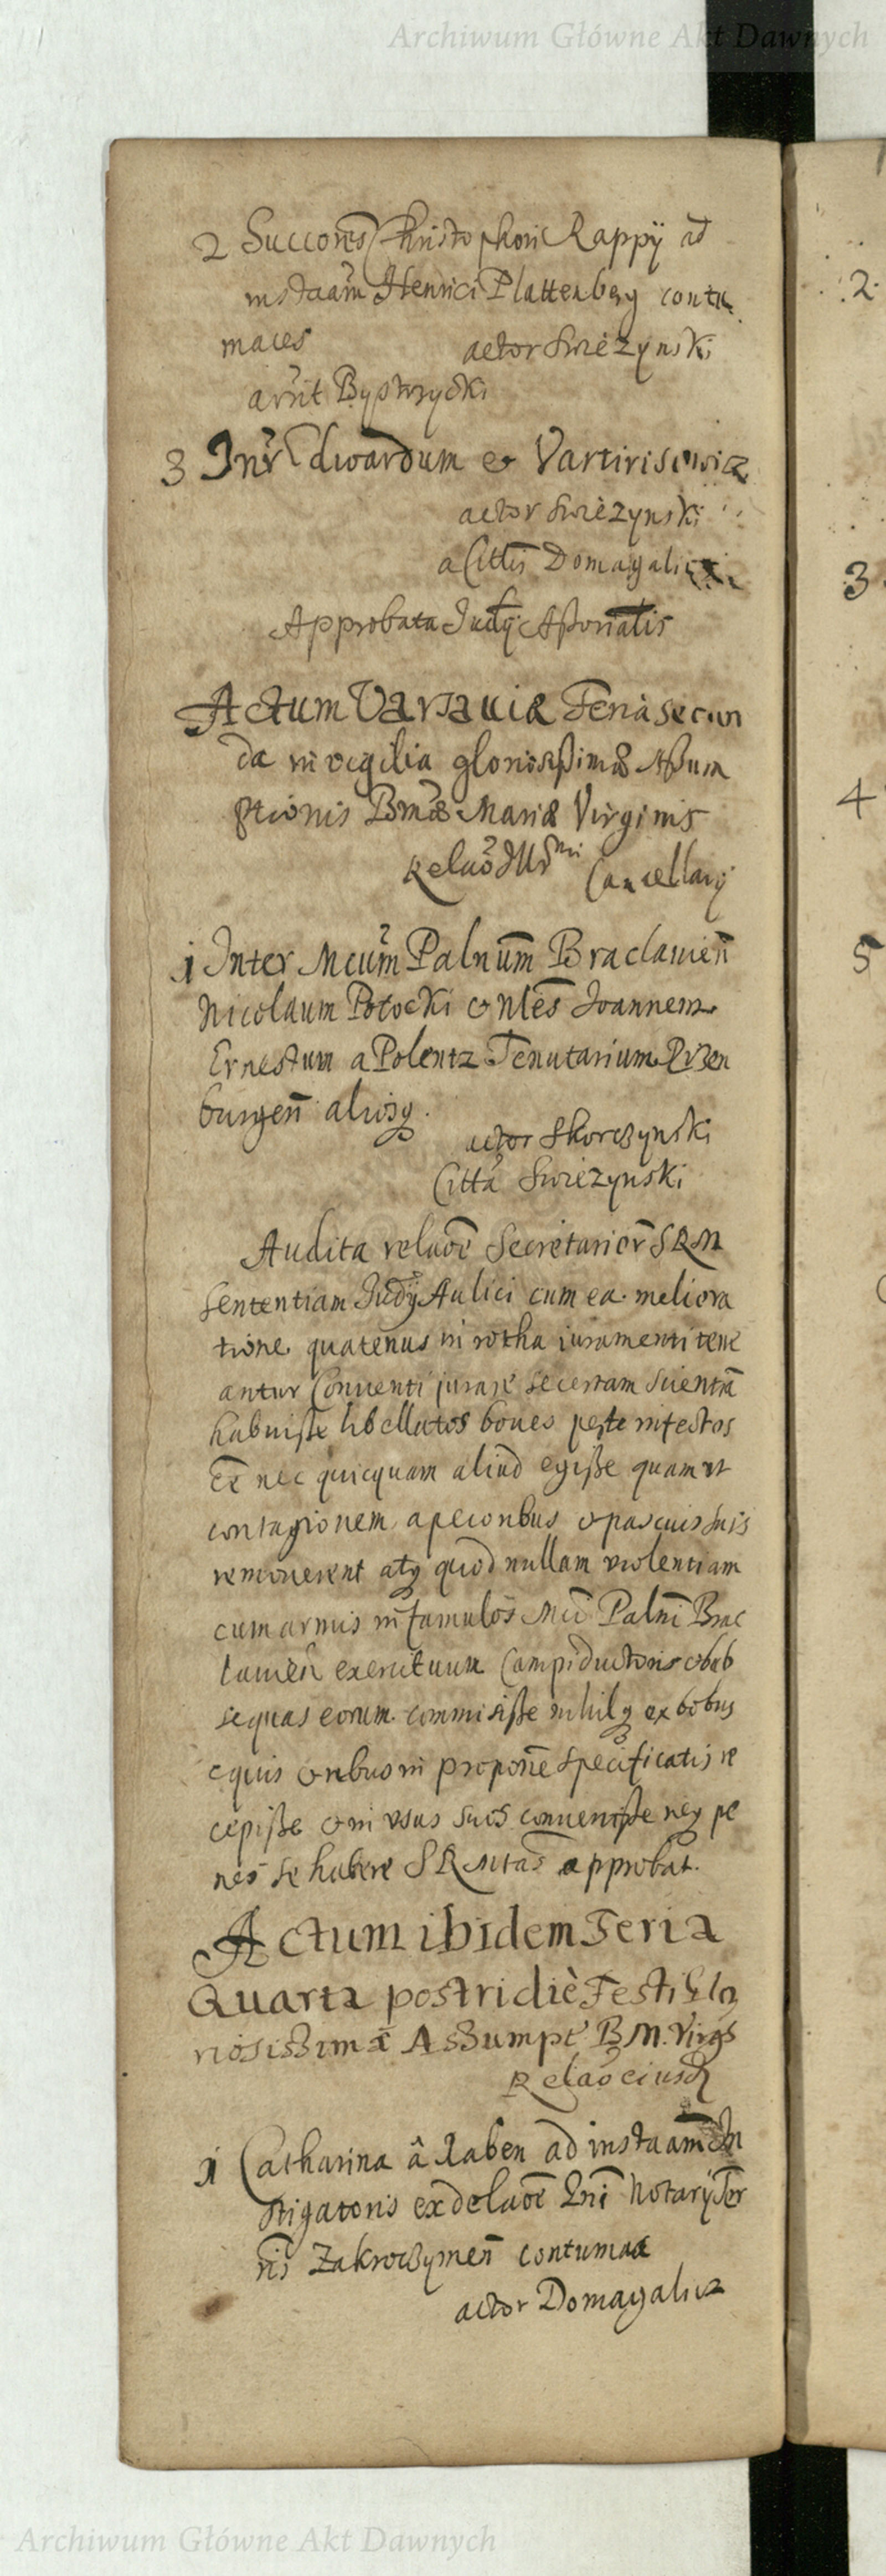 Archiwum Główne Akt Dawnych
2 Succores Christophori Rappÿ ad
instaam Henrici Plattenberg contu
maces actor Swiezynski
arrit Bystrzycki
3 Inr Edwardum et
actor Swiezynski
a Cittis Domagalicz
Approbata Judÿ Assonalis
Actum Varsaviæ Feria secun
da in vigilia gloriosissimæ Assum
ptionis Bmæ Mariæ Virginis
Relao Illrmi Cancellarij
1 Inter Mcum Palnum Braclavien
Nicolaum Potocki et Nles Joannem
Ernestum a Polentz Tenutarium Rizen
burgen aliosq.
actor Skorczynski
Citta Swiezynski
Audita relaoe Secretarior SRM
sententiam Judÿ Aulici cum ea meliora
tione quatenus in rotha iuramenti tene
antur Conventi jurare se certam scientia
habuisse libellatos boues peste infectos
ee nec quicquam aliud egisse quam ut
contagionem a pecoribus et pascuis suis
remouerent atq quod nullam violentiam
cum armis in famulos Mci Palni Brac
lauien exercituum Campiductoris
sequas eorum commisisse nihilq ex bobus
equis et rebus in propone specificatis re
cepisse et in usus suos conuertisse neq pe
nes se habere SRMtas approbat.
Actum ibidem Feria
Quarta postridiè Festi Glo
riosissimæ Assumpt B.M. Virgs
Relao eiusd
1 Catharina â Raben ad instaam In
stigatoris ex delaoe Gni Notarÿ Ter
ris Zakroczymen contumax
actor Domagalicz
2.
3.
4
5
Archiwum Główne Akt Dawnych